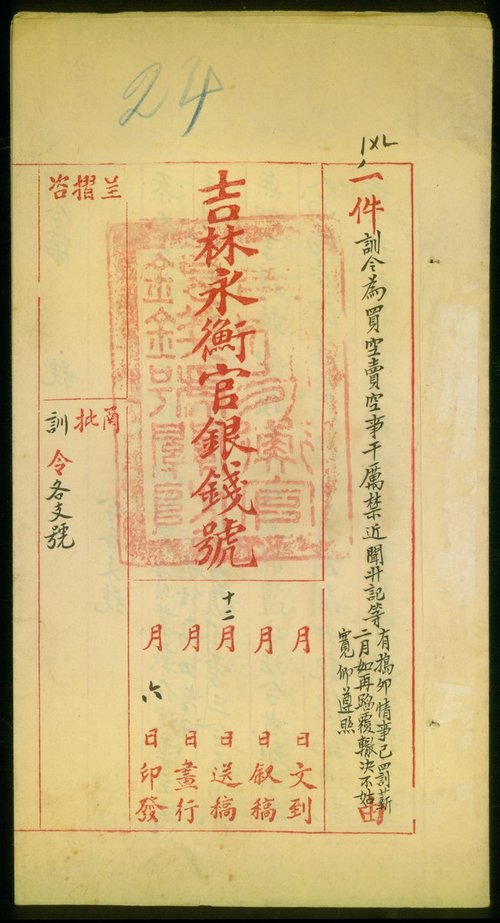 24
一件
訓令為買空賣空事干厲禁近聞升記等
有搗卯情事已罰薪
二月如再蹈覆轍决不姑
寬仰遵照
由
月 日文到
月 日叙稿
十二月 日送稿
月 日畫行
月六日印發
吉林永衡官銀錢號
呈摺咨
函批訓
令各支號